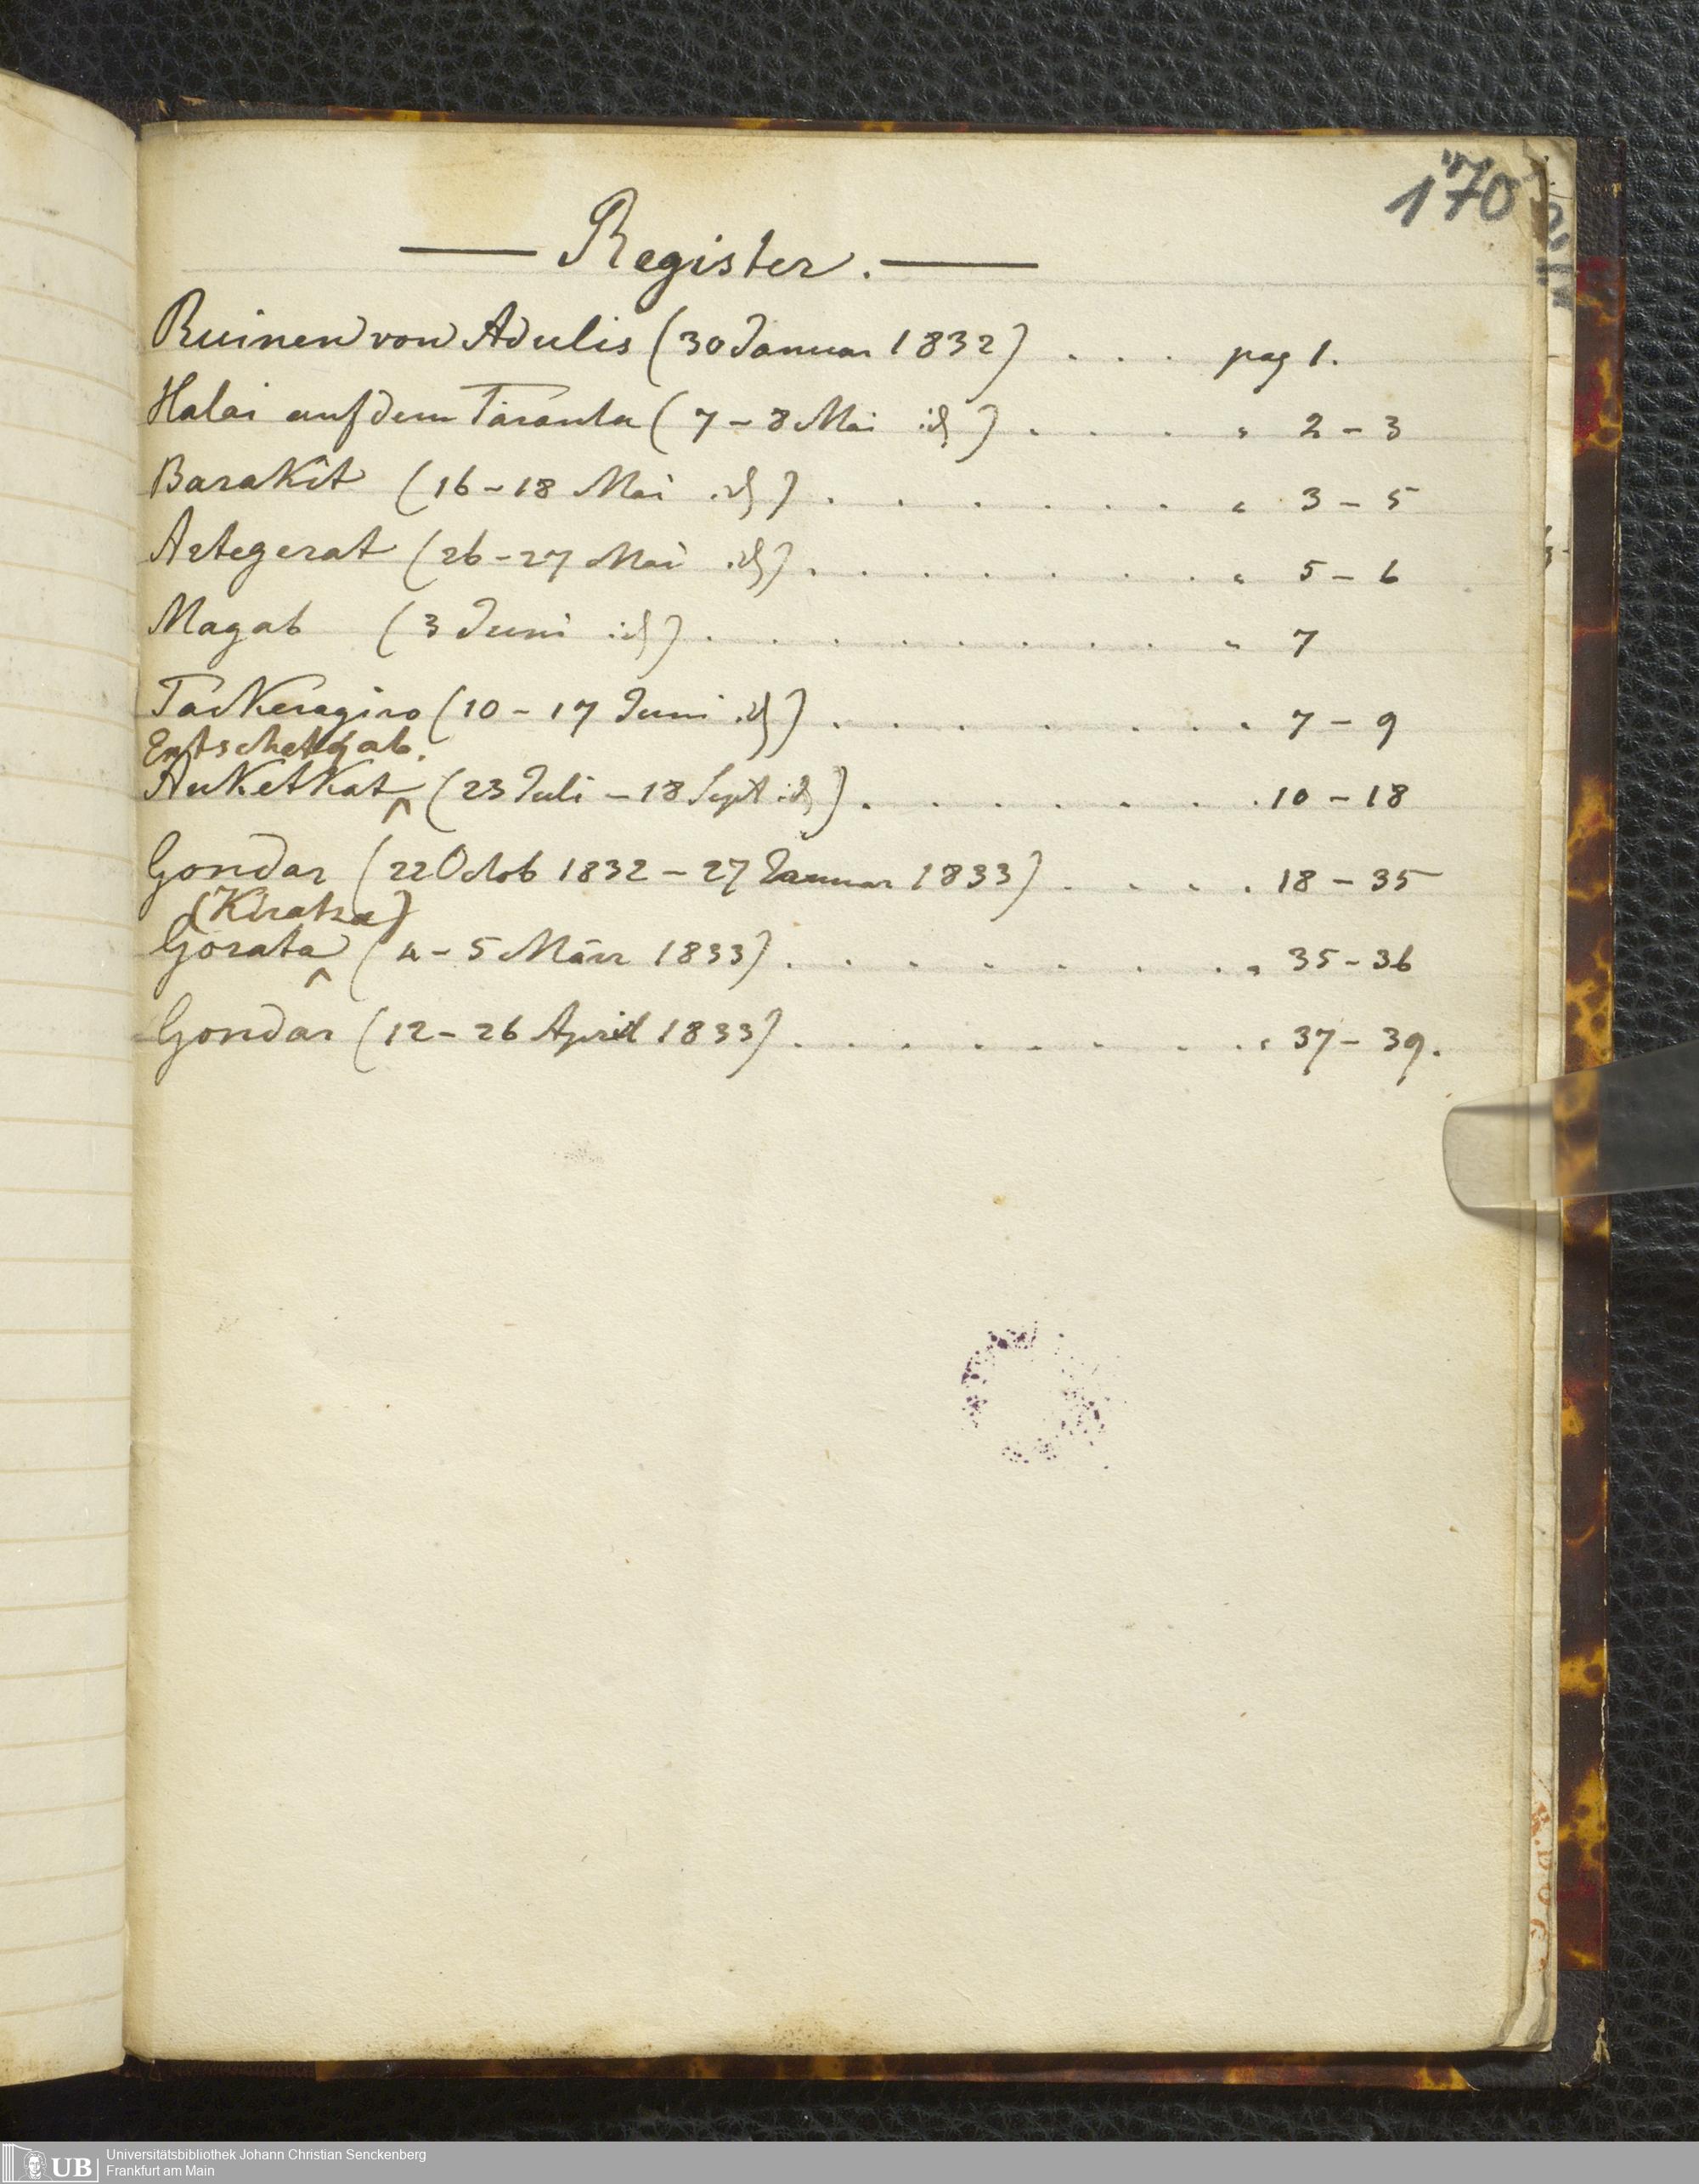 170
— Register. —
Ruinen von Adulis (30 Januar 1832) . . . pag 1.
Halai auf dem Taranta (7 - 8 Mai id) . . . . " 2 - 3
Barakit (16 - 18 Mai id) . . . . . . . " 3 - 5
Artegerat (26 - 27 Mai id) . . . . . . . " 5 - 6
Magab (3 Juni id) . . . . . . . . " 7
Takeragiro (10 - 17 Juni id) . . . . . . . " 7 - 9
Entschetgab.
Anketkat (23 Juli - 18 Sept id) . . . . . . . 10 - 18
Gondar (22 Octob 1832 - 27 Januar 1833) . . . . 18 - 35
(Kiratza)
Gorata (4 - 5 März 1833) . . . . . . . " 35 - 36
Gondar (12 - 26 April 1833) . . . . . . . . " 37 - 39.
UB
Universitätsbibliothek Johann Christian Senckenberg
Frankfurt am Main